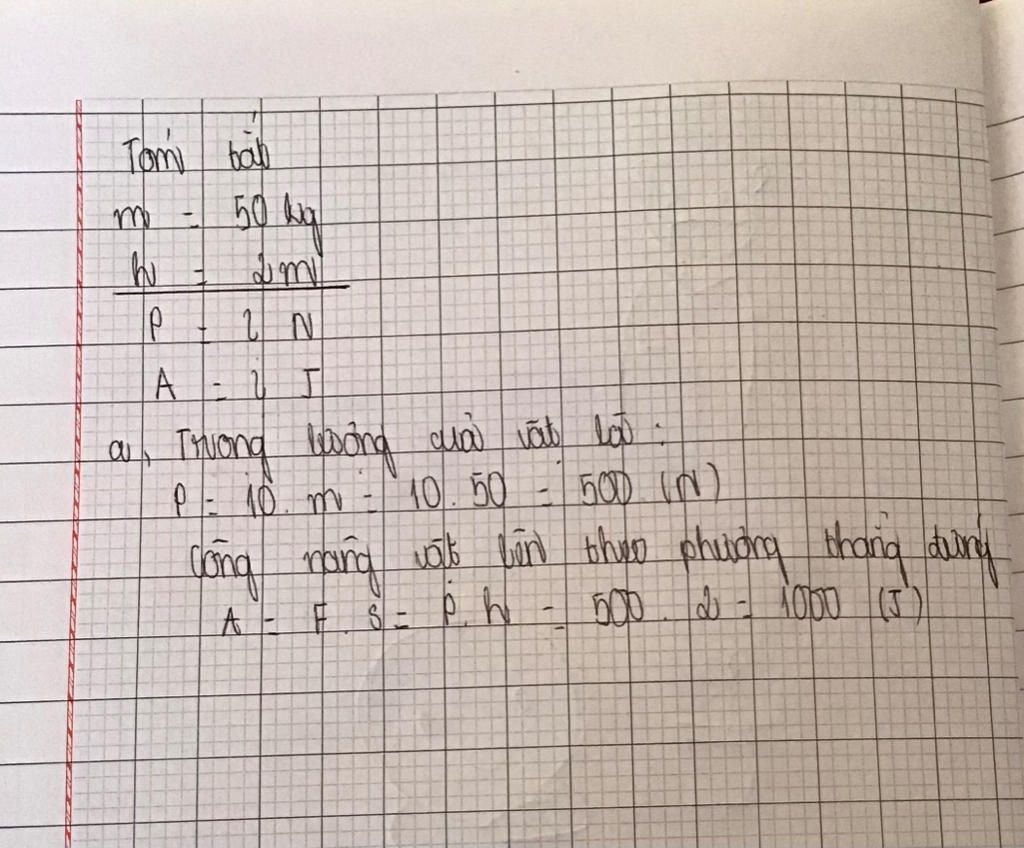 Tóm tắt
m = 50 kg
h = 2m
P = ? N
A = ? J
a, Trọng lượng của vật là :
P = 10 . m = 10 . 50 = 500 (N)
Công nâng vật lên theo phương thẳng đứng
A = F . S = P . h = 500 . 2 = 1000 (J)